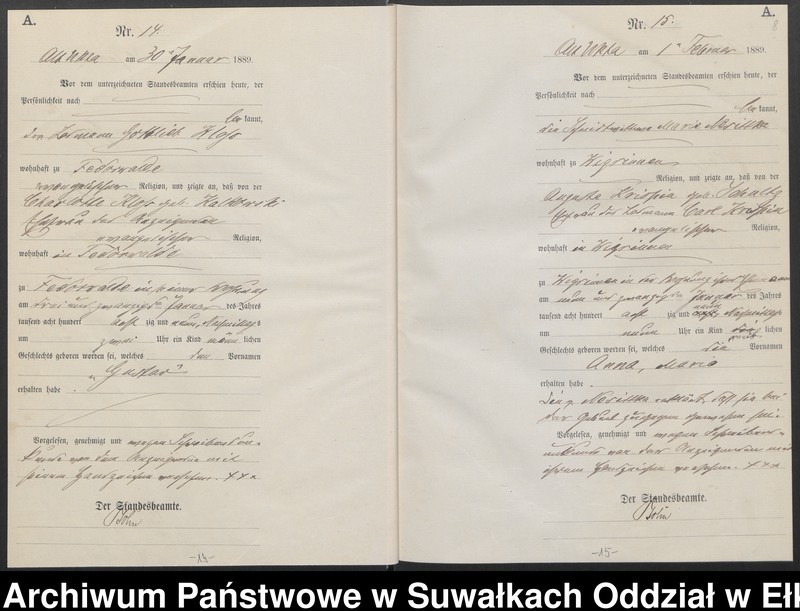 A.
Nr. 14.
Alt Ukta am 30 Januar 1889.
Vor dem unterzeichneten Standesbeamten erschien heute, der
Persönlichkeit nach
kannt,
der Losmann Gottlieb
wohnhaft zu Federwalde
evangelischer Religion, und zeigte an, daß von der
Charlotte geb.
Ehefrau des Anzeigenden
evangelischer Religion,
wohnhaft in Federwalde
zu Federwalde in seiner Wohnung
am drei und zwanzigsten Januar des Jahres
tausend acht hundert acht zig und neun, Nachmittags
um zwei Uhr ein Kind männ lichen
Geschlechts geboren worden sei, welches den Vornamen
„Gustav“
erhalten habe.
Vorgelesen, genehmigt und wegen Schreibensun-
kunde von dem Anzeigenden mit
seinem Handzeichen versehen. + + +
Der Standesbeamte.
-14-
A.
Nr. 15.
Alt Ukta am 1 Februar 1889.
Vor dem unterzeichneten Standesbeamten erschien heute, der
Persönlichkeit nach
kannt,
die Marie
wohnhaft zu Wigrinnen
Religion, und zeigte an, daß von der
Auguste geb.
Ehefrau des Losmann Carl
evangelischer Religion,
wohnhaft in Wigrinnen
zu Wigrinnen in der Wohnung ihres Ehemannes
am neun und zwanzigsten Januar des Jahres
tausend acht hundert acht zig und neun Nachmittags
um neun Uhr ein Kind weib lichen
Geschlechts geboren worden sei, welches die Vornamen
Anna, Marie
erhalten habe.
Die p. erklärt, daß sie bei
der Geburt zugegen gewesen sei.
Vorgelesen, genehmigt und wegen Schreibens-
unkunde von der Anzeigenden mit
ihrem Handzeichen versehen. + + +
Der Standesbeamte.
-15-
Archiwum Państwowe w Suwałkach Oddział w Eł